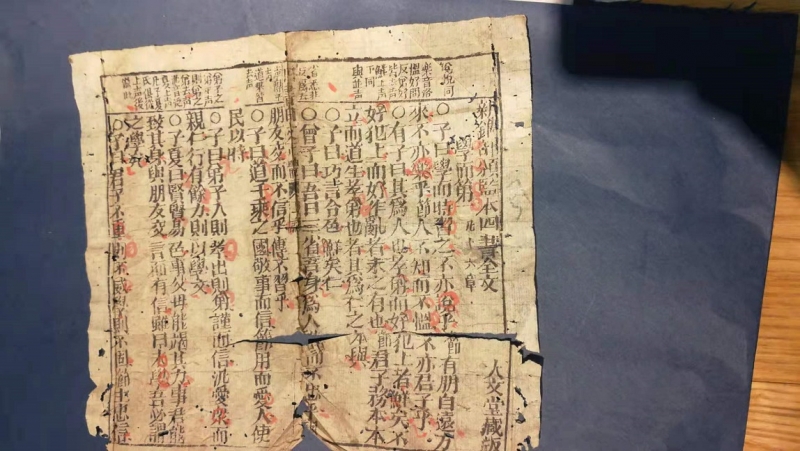 說悅同
樂音洛
與平声
本四書全文
人文堂藏板
學而第一 凡十六章
○子曰學而時習之不亦說乎節有朋自遠方
來不亦樂乎節人不知而不慍不亦君子乎
○有子曰其為人也孝弟而好犯上者鮮矣不
好犯上而好作亂者未之有也節君子務本本
立而道生孝弟也者其為仁之本與
○子曰巧言令色鮮矣仁
○曾子曰吾日三省吾身為人謀而不忠乎
朋友交而不信乎傳不習乎
○子曰道千乘之國敬事而信節用而愛人使
民以時
○子曰弟子入則孝出則弟謹而信汎愛衆而
親仁行有餘力則以學文
○子夏曰賢賢易色事父母能竭其力事君能
致其身與朋友交言而有信雖曰未學吾必謂
之學矣
○子曰君子不重則不威學則不固節主忠信